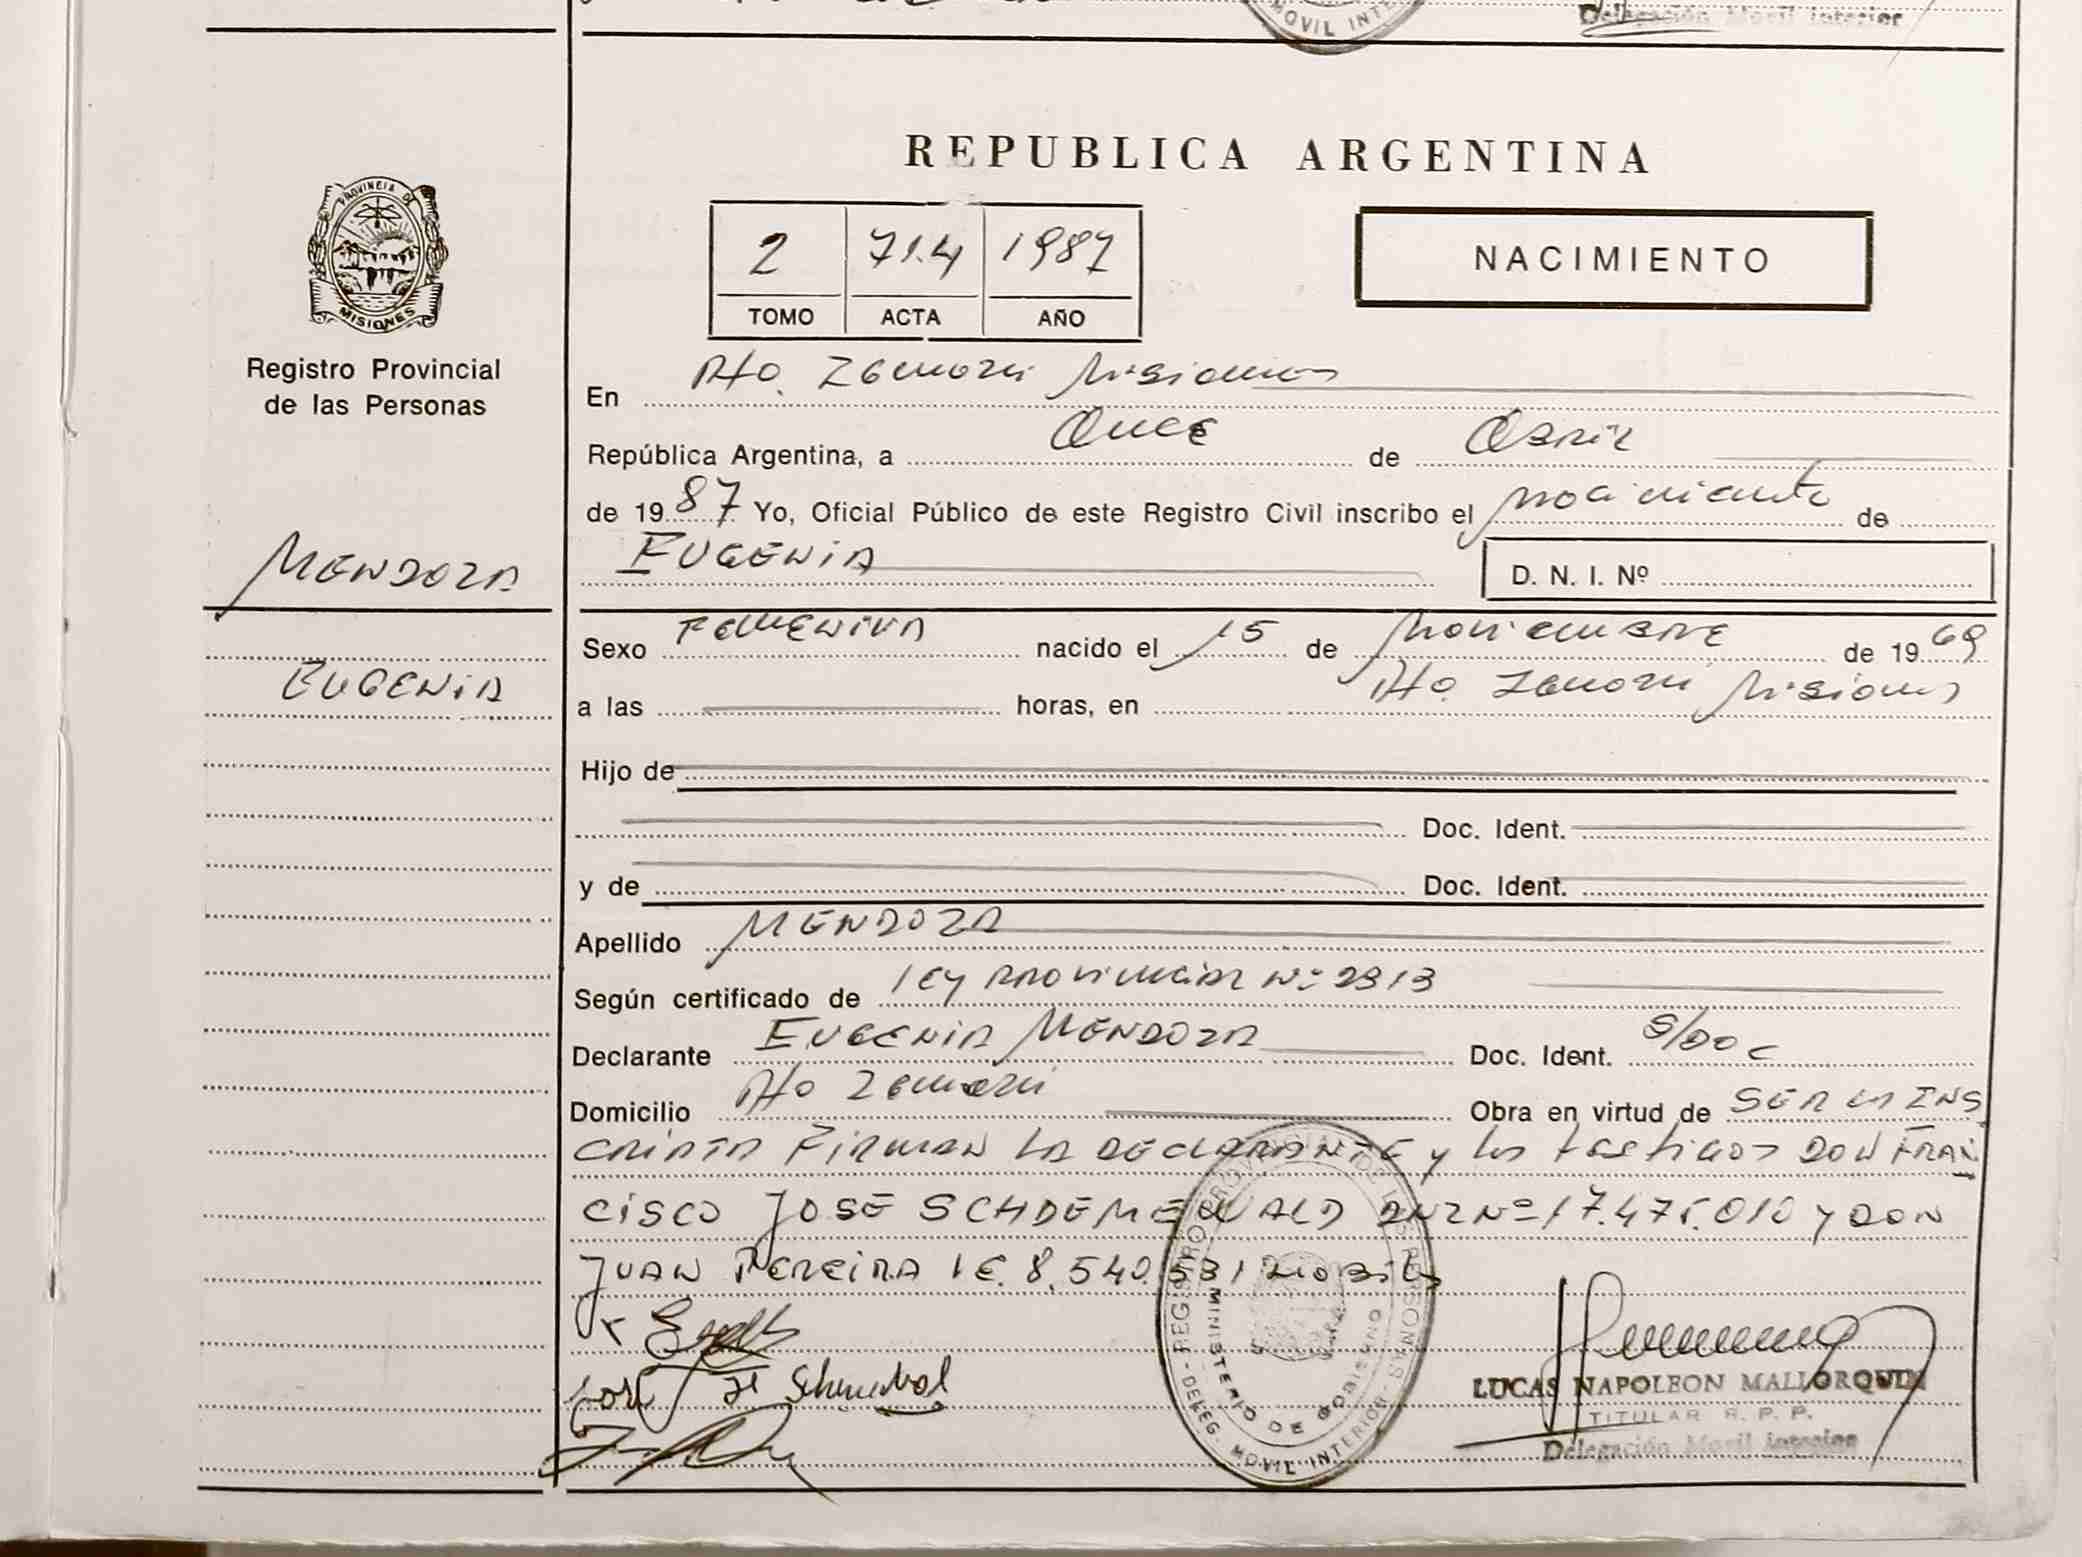 MOVIL INTE
Delegación Movil Interior
REPUBLICA ARGENTINA
PROVINCIA DE
MISIONES
Registro Provincial
de las Personas
2 714 1987
TOMO ACTA AÑO
NACIMIENTO
En Pto. Misiones
República Argentina, a Once de Abril
de 1987 Yo, Oficial Público de este Registro Civil inscribo el nacimiento de
EUGENIA
D. N. I. Nº
MENDOZA
EUGENIA
Sexo FEMENINA nacido el 15 de noviembre de 1969
a las horas, en Pto. Misiones
Hijo de
Doc. Ident.
y de Doc. Ident.
Apellido MENDOZA
Según certificado de ley PROVINCIAL Nº 2313
Declarante EUGENIA MENDOZA Doc. Ident. S/DOC
Domicilio Pto Obra en virtud de SER LA INS
CRIPTA FIRMAN LA DECLARANTE y los testigos DON FRAN
CISCO JOSE DNI Nº 17.475.010 y DON
JUAN PEREIRA LE. 8.540.531
REGISTRO PROVINCIAL DE LAS PERSONAS
MINISTERIO DE GOBIERNO
DELEG. MOVIL INTERIOR
LUCAS NAPOLEON MALLORQUIN
TITULAR R. P. P.
Delegación Movil Interior